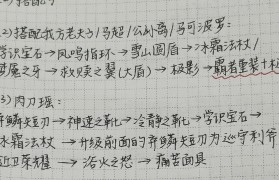 2)搭配我方老夫子/马超/公孙离/马可波罗:
学识宝石→凤鸣指环→雪山圆盾→冰霜法杖/
梦魇之牙→救赎之翼(大盾)→极影→霸者重装
3)肉刀强:
奔鳞短刃→神速之靴→冷静之靴→学识宝石→
冰霜法杖→升级前面的奔鳞短刃为巡守利斧
近卫荣耀→浴火之怒→痛苦面具